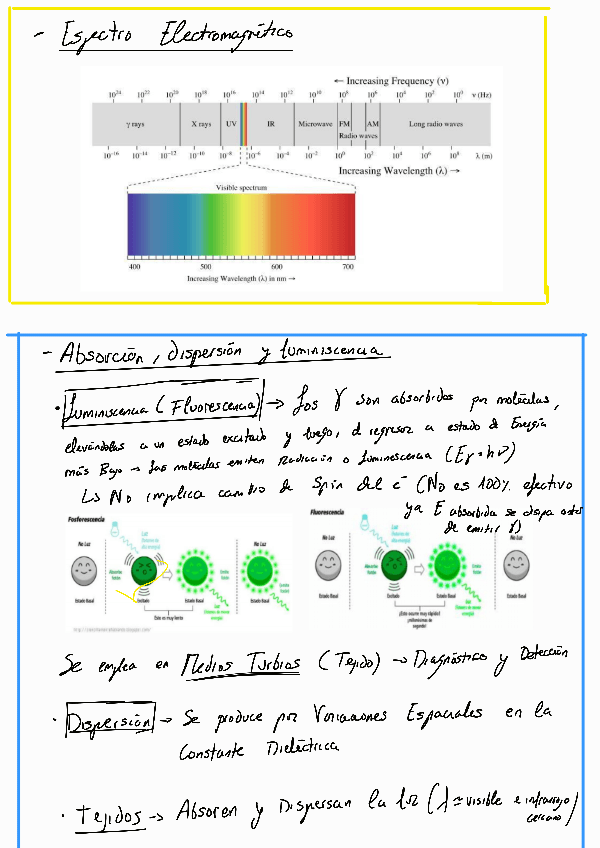 - Espectro Electromagnético
← Increasing Frequency (ν)
10²⁴ 10²² 10²⁰ 10¹⁸ 10¹⁶ 10¹⁴ 10¹² 10¹⁰ 10⁸ 10⁶ 10⁴ 10² 10⁰ ν (Hz)
γ rays X rays UV IR Microwave FM AM Long radio waves
Radio waves
10⁻¹⁶ 10⁻¹⁴ 10⁻¹² 10⁻¹⁰ 10⁻⁸ 10⁻⁶ 10⁻⁴ 10⁻² 10⁰ 10² 10⁴ 10⁶ 10⁸ λ (m)
Increasing Wavelength (λ) →
Visible spectrum
400 500 600 700
Increasing Wavelength (λ) in nm →
- Absorción, dispersión y luminiscencia
· Luminiscencia (Fluorescencia) → Los γ son absorbidos por moléculas,
elevándolas a un estado excitado y luego, al regresar a estado de Energía
más Bajo → las moléculas emiten Radiación o luminescencia (Eγ = hν)
↳ No implica cambio de Spin del e⁻ (No es 100% efectivo
ya E absorbida se disipa antes
de emitir γ)
Fosforescencia
No Luz Luz No Luz
Absorbe fotón Emite fotón
Estado Basal Excitado Estado Basal Estado Basal
Esto es muy lento
Fluorescencia
No Luz Luz No Luz
Absorbe fotón Emite fotón
Estado Basal Excitado Estado Basal Estado Basal
¡Esto ocurre muy rápido!
Se emplea en Medios Turbios (Tejido) → Diagnóstico y Detección
· Dispersión → Se produce por Variaciones Espaciales en la
Constante Dieléctrica
· Tejidos → Absoren y Dispersan la luz (λ = visible e infrarrojo
cercano)